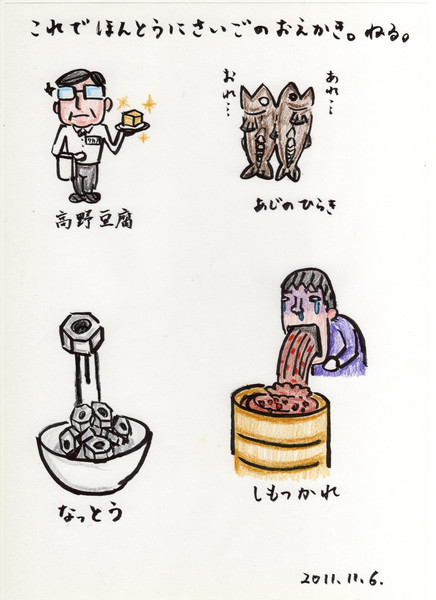 これでほんとうにさいごのおえかき。ねる。
あれ…
おれ…
高野豆腐
あじのひらき
なっとう
しもつかれ
2011.11.6.